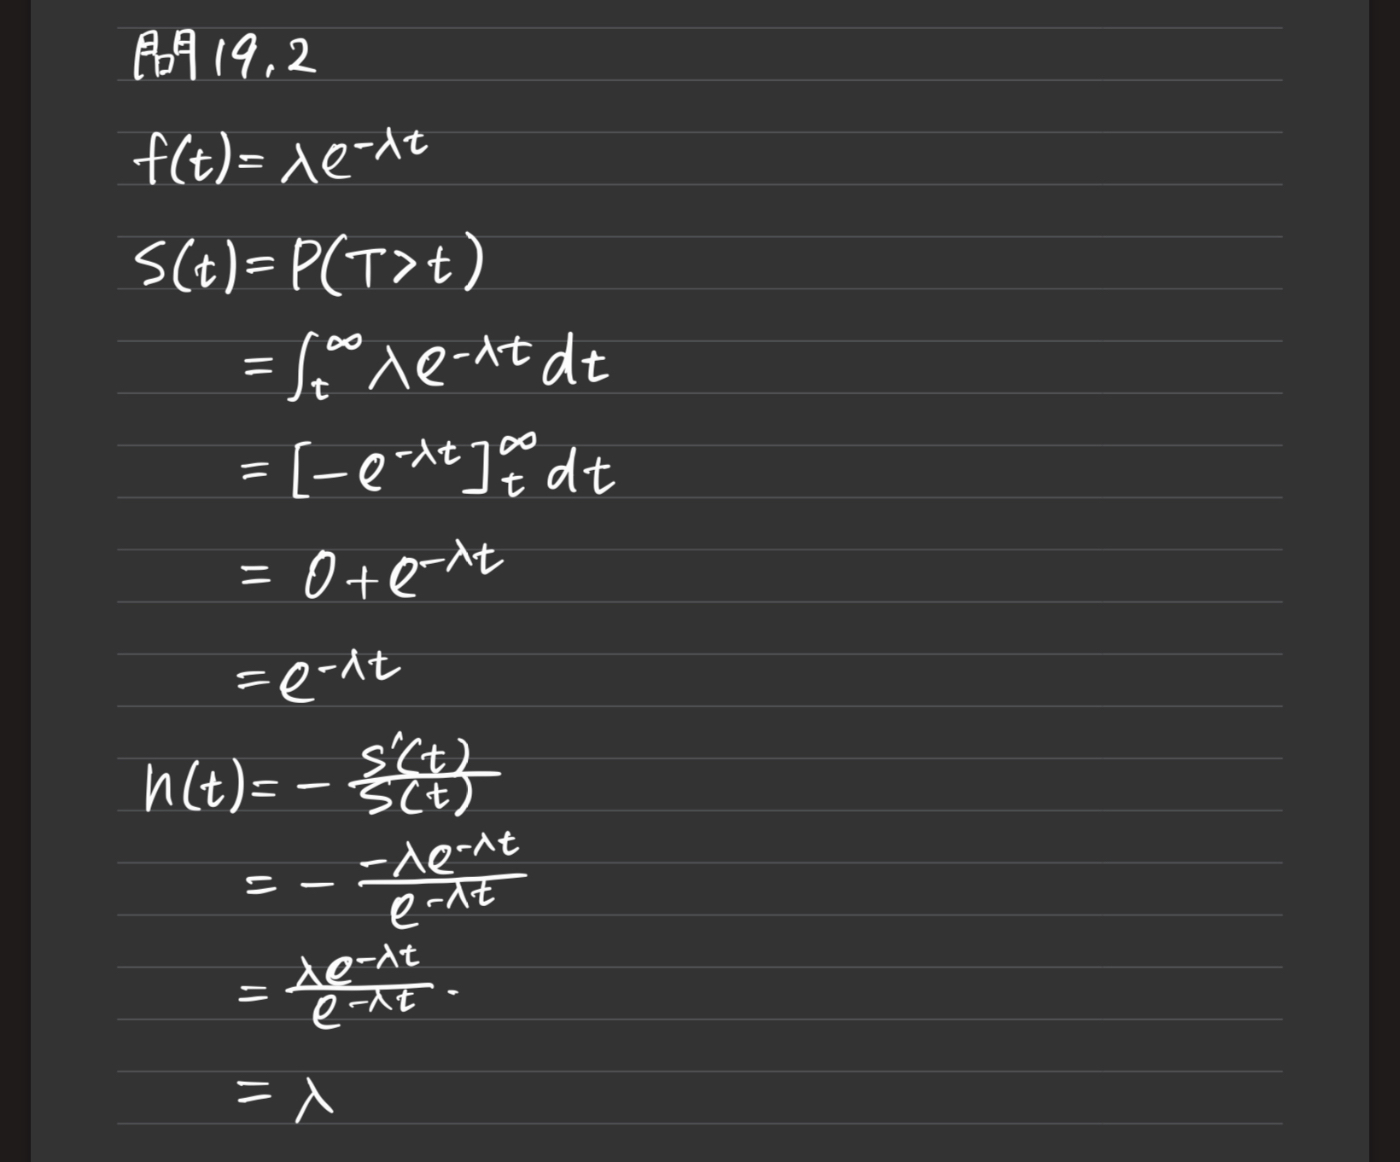 問19.2
f(t)= λe^{-λt}
S(t)= P(T>t)
= ∫_t^∞ λe^{-λt} dt
= [-e^{-λt}]_t^∞ dt
= 0+e^{-λt}
= e^{-λt}
h(t)= - S'(t)/S(t)
= - -λe^{-λt}/e^{-λt}
= λe^{-λt}/e^{-λt} .
= λ